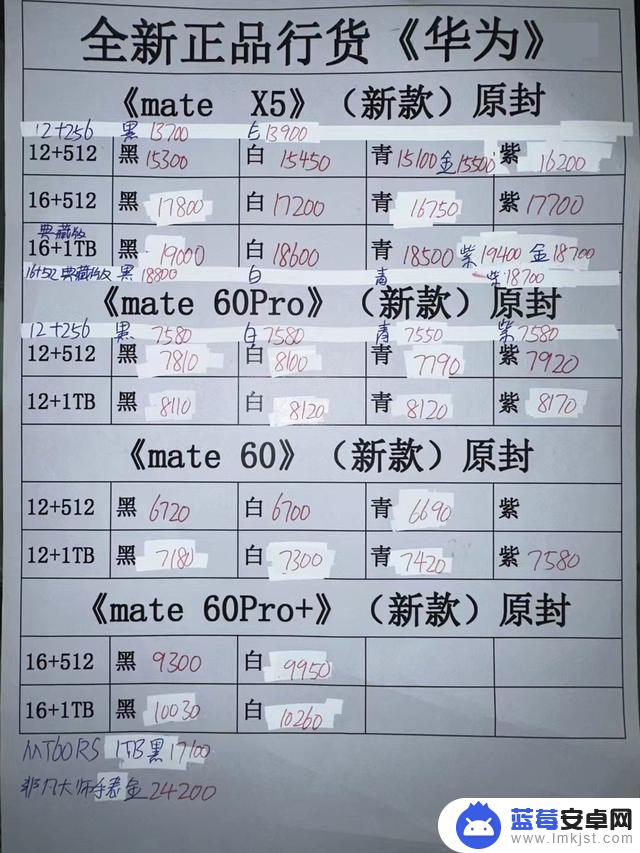 全新正品行货《华为》
《mate X5》（新款）原封
12+256 黑 13700 白 13900
12+512 黑 15300 白 15450 青 15100 金 15500 紫 16200
16+512 黑 17800 白 17200 青 16750 紫 17700
典藏版
16+1TB 黑 19000 白 18600 青 18500 紫 19400 金 18700
16+512 典藏版 黑 18800 白 青 紫 18700
《mate 60Pro》（新款）原封
12+256 黑 7580 白 7580 青 7550 紫 7580
12+512 黑 7810 白 8100 青 7790 紫 7920
12+1TB 黑 8110 白 8120 青 8120 紫 8170
《mate 60》（新款）原封
12+512 黑 6720 白 6700 青 6690 紫
12+1TB 黑 7180 白 7300 青 7420 紫 7580
《mate 60Pro+》（新款）原封
16+512 黑 9300 白 9950
16+1TB 黑 10030 白 10260
MT60RS 1TB 黑 17100
非凡大师手表 金 24200
蓝莓安卓网
www.lmkjst.com